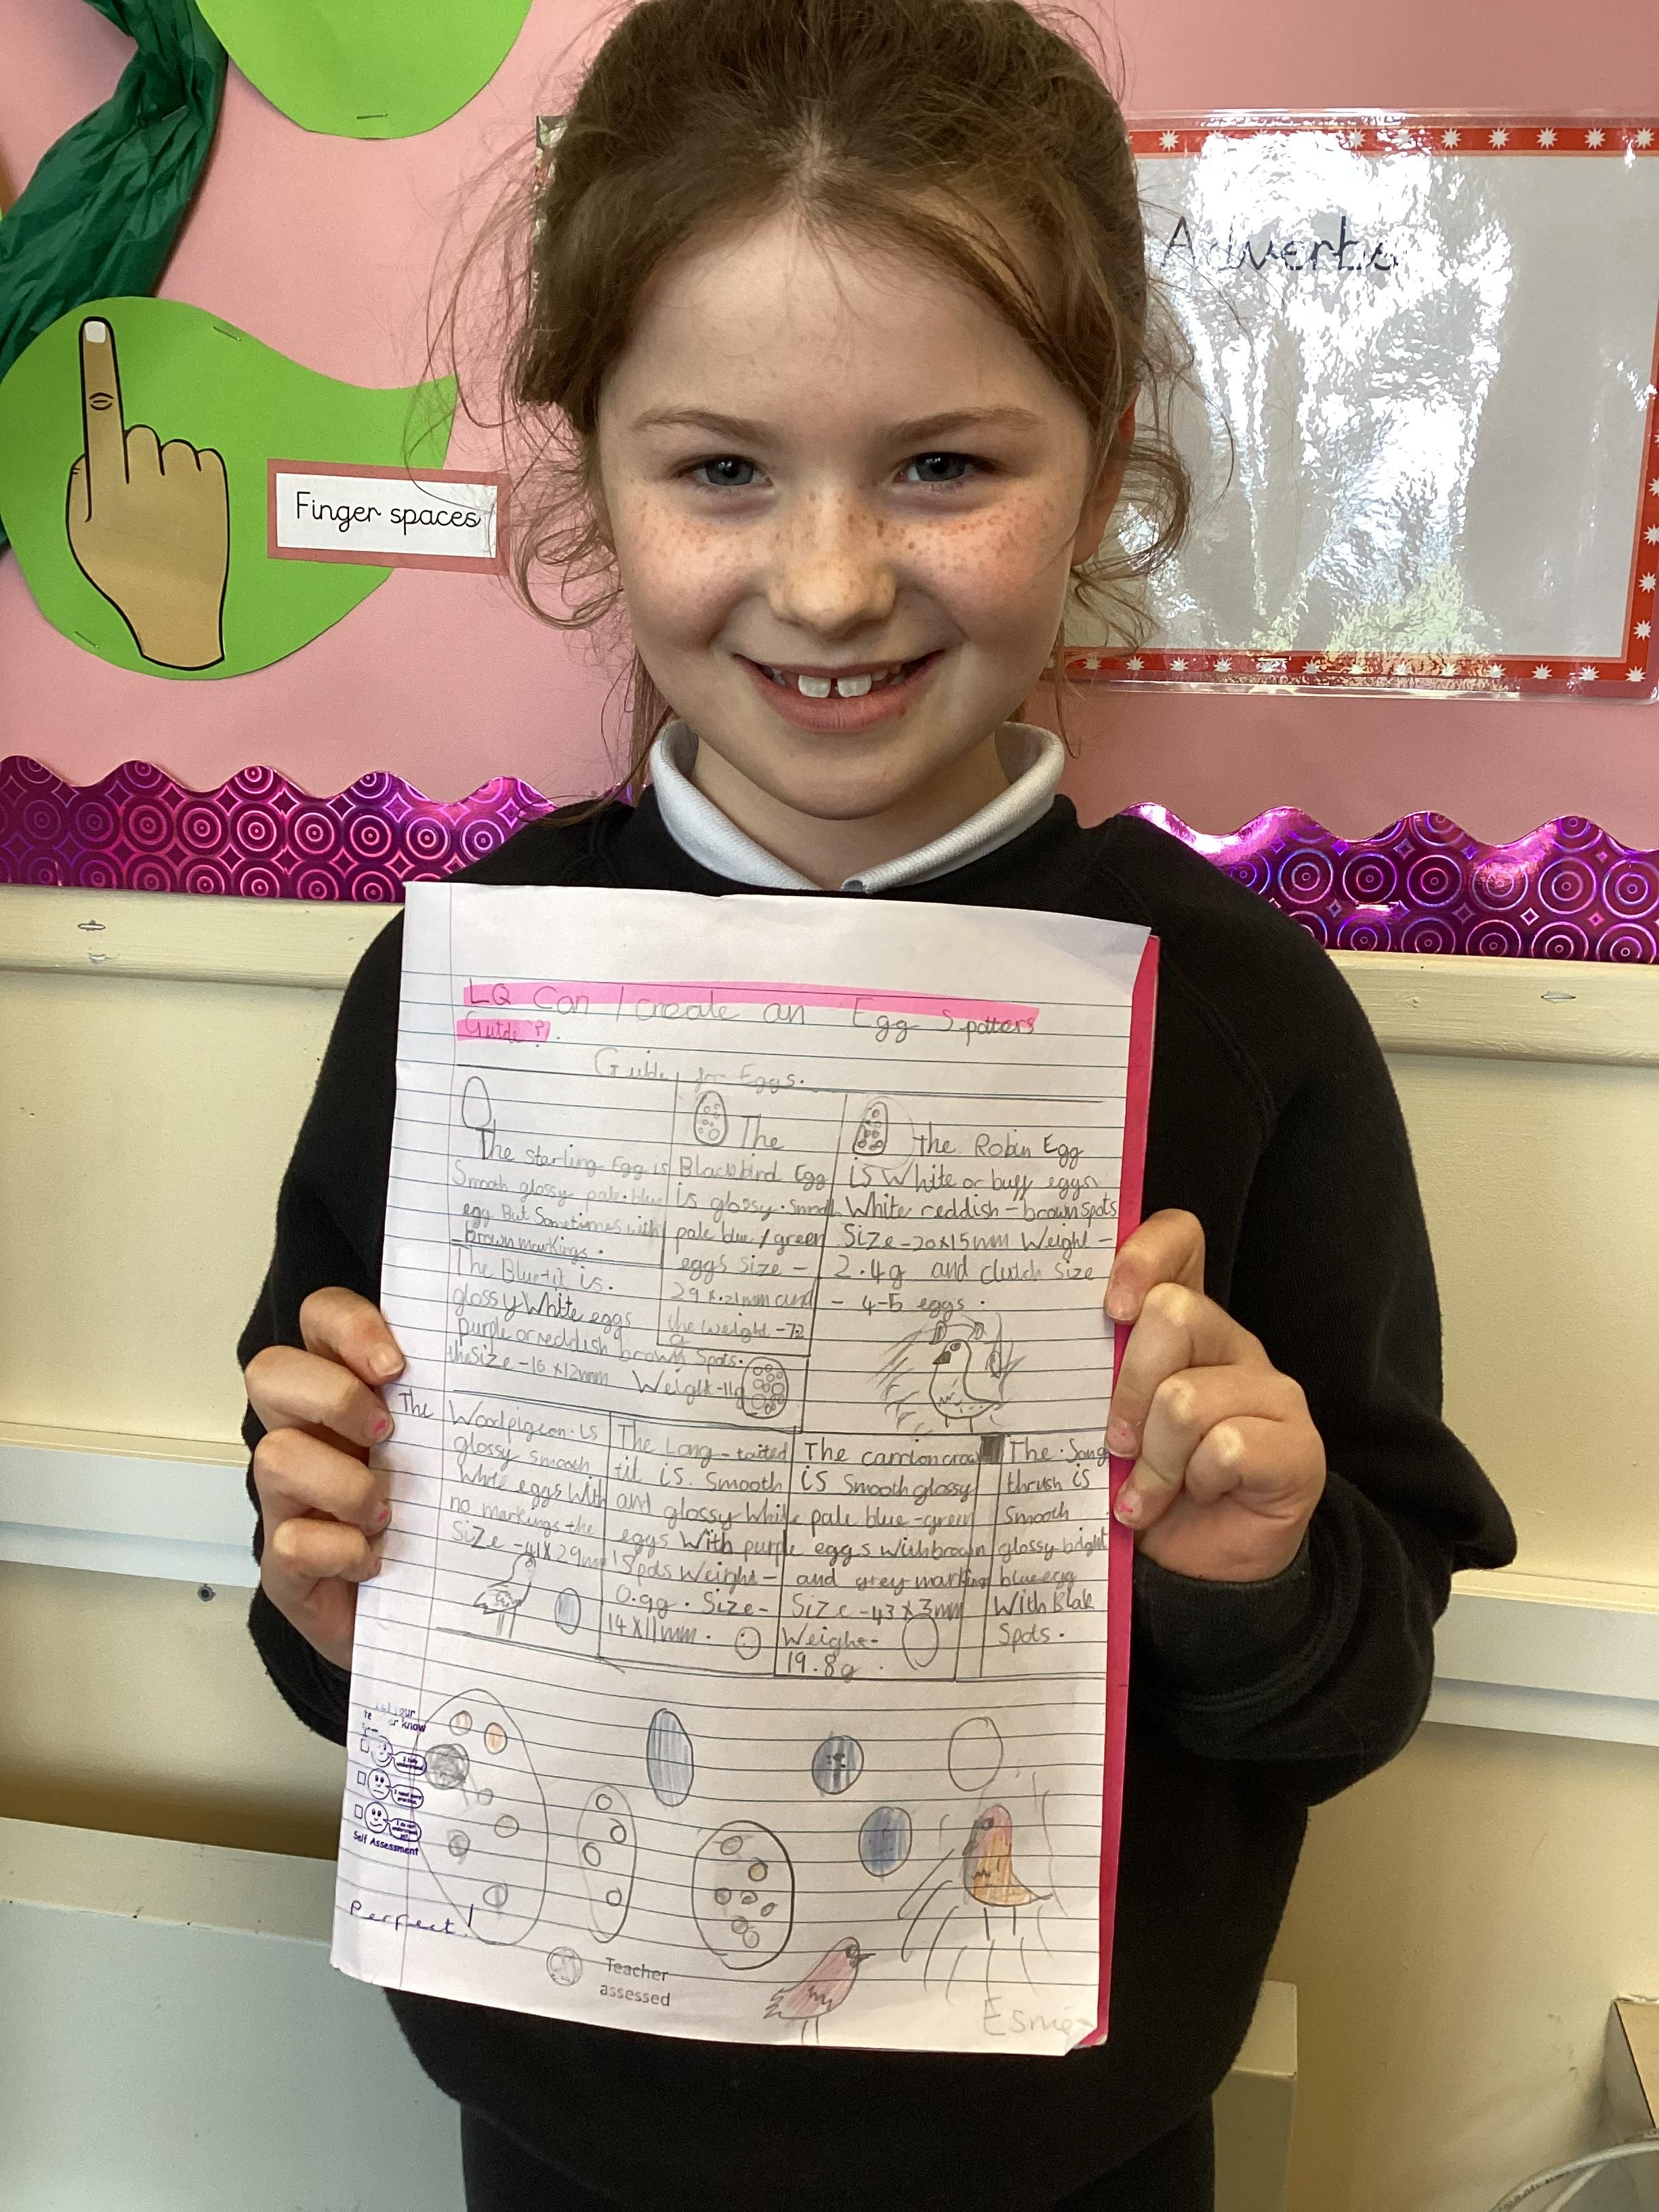 Finger spaces
Adverbs
LQ Can I create an Egg Spotters
Guide?
Guide for Eggs.
The starling Egg is
Smooth glossy pale blue
egg But Sometimes with
Brown markings.
The
Blackbird Egg
is glossy. Smooth
pale blue/green
eggs size -
29 x 21mm and
the weight -72
g
the Robin Egg
is White or buff eggs
White reddish-brown spots
Size-20x15mm Weight-
2.4g and clutch size
- 4-5 eggs.
The Blue-tit is.
glossy White eggs
purple or reddish brown Spots.
the Size-16x12mm Weight-11g
The Woodpigeon is
glossy smooth
White eggs With
no markings the
Size -41x29mm
The Long-tailed
tit is. Smooth
and glossy White
eggs With purple
Spots Weight-
0.9g. Size-
14x11mm.
The carrion crow
is Smooth glossy
pale blue-green
eggs with brown
and grey marking
Size-43x3mm
Weight-
19.8g.
The Song
thrush is
Smooth
glossy bright
blue egg
With Blak
Spots.
Self Assessment
Perfect!
Teacher
assessed
Esmé